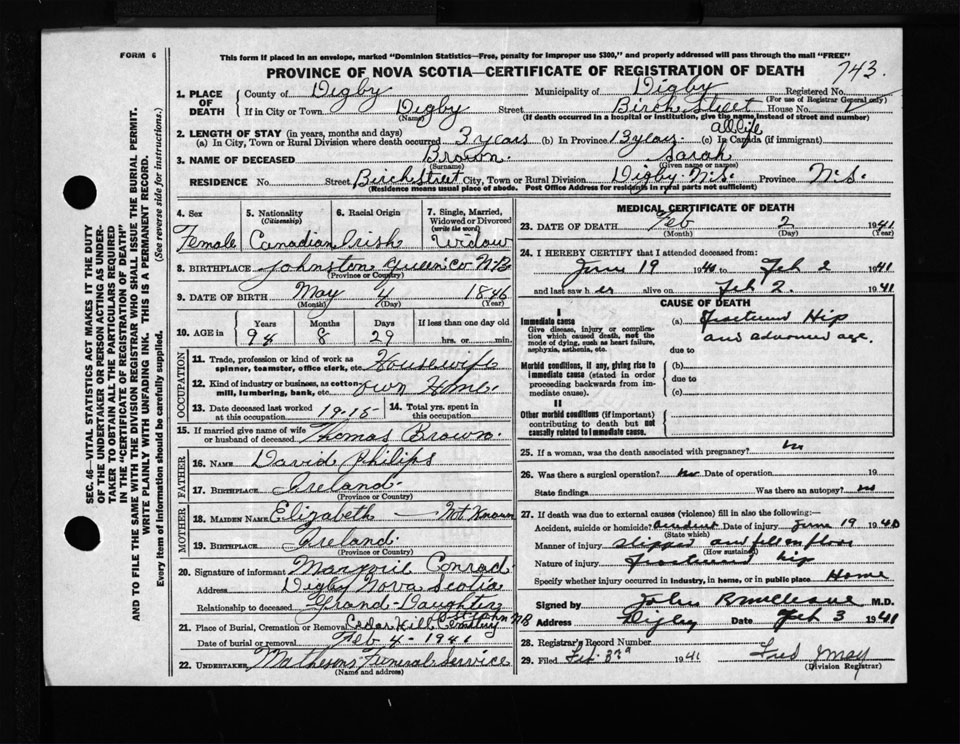 FORM 6
This form if placed in an envelope, marked "Dominion Statistics—Free, penalty for improper use $300," and properly addressed will pass through the mail "FREE"
PROVINCE OF NOVA SCOTIA—CERTIFICATE OF REGISTRATION OF DEATH
743.
SEC. 46—VITAL STATISTICS ACT MAKES IT THE DUTY
OF THE UNDERTAKER OR PERSON ACTING AS UNDER-
TAKER TO OBTAIN ALL THE PARTICULARS REQUIRED
IN THE "CERTIFICATE OF REGISTRATION OF DEATH"
AND TO FILE THE SAME WITH THE DIVISION REGISTRAR WHO SHALL ISSUE THE BURIAL PERMIT.
WRITE PLAINLY WITH UNFADING INK. THIS IS A PERMANENT RECORD.
Every item of information should be carefully supplied. (See reverse side for instructions.)
1. PLACE OF DEATH
County of Digby Municipality of Digby Registered No.
(For use of Registrar General only)
If in City or Town Digby Street Birch Street House No.
(Name) (If death occurred in a hospital or institution, give the name instead of street and number)
2. LENGTH OF STAY (in years, months and days)
(a) In City, Town or Rural Division where death occurred 3 years (b) In Province 13 years (c) In Canada (if immigrant) all life
3. NAME OF DECEASED Brown. Sarah
(Surname) (Given name or names)
RESIDENCE No. Street Birch Street City, Town or Rural Division Digby. N.S. Province N.S.
(Residence means usual place of abode. Post Office Address for residents in rural parts not sufficient)
4. Sex Female
5. Nationality (Citizenship) Canadian
6. Racial Origin Irish
7. Single, Married, Widowed or Divorced (write the word) Widow
8. BIRTHPLACE Johnston Queen Co N.B
(Province or Country)
9. DATE OF BIRTH May 4 1846
(Month) (Day) (Year)
10. AGE in Years Months Days If less than one day
94 8 29 hrs. or min.
OCCUPATION
11. Trade, profession or kind of work as spinner, teamster, office clerk, etc. Housewife
12. Kind of industry or business, as cotton mill, lumbering, bank, etc. own Home.
13. Date deceased last worked at this occupation 1915
14. Total yrs. spent in this occupation
15. If married give name of wife or husband of deceased Thomas Brown.
FATHER
16. NAME David Philips
17. BIRTHPLACE Ireland.
(Province or Country)
MOTHER
18. MAIDEN NAME Elizabeth — Not Known
19. BIRTHPLACE Ireland.
(Province or Country)
20. Signature of informant Marjorie Conrad
Address Digby Nova Scotia
Relationship to deceased Grand-Daughter
21. Place of Burial, Cremation or Removal Cedar Hill Cemetery John NB
Date of burial or removal Feb 4 - 1941
22. UNDERTAKER Mathesons Funeral Service
(Name and address)
MEDICAL CERTIFICATE OF DEATH
23. DATE OF DEATH Feb 2 1941
(Month) (Day) (Year)
24. I HEREBY CERTIFY that I attended deceased from:
June 19 1940 to Feb 2 1941
and last saw her alive on Feb 2. 1941
CAUSE OF DEATH
I
Immediate cause (a) Fractured Hip
Give disease, injury or complication which caused death, not the mode of dying, such as heart failure, asphyxia, asthenia, etc.
and advanced age.
due to
Morbid conditions, if any, giving rise to immediate cause (stated in order proceeding backwards from immediate cause).
(b)
due to
(c)
II
Other morbid conditions (if important) contributing to death but not causally related to immediate cause.
25. If a woman, was the death associated with pregnancy? no
26. Was there a surgical operation? no Date of operation 19
State findings Was there an autopsy? no
27. If death was due to external causes (violence) fill in also the following:
Accident, suicide or homicide? accident Date of injury June 19 1940
(State which)
Manner of injury slipped and fell on floor
(How sustained)
Nature of injury Fractured hip
Specify whether injury occurred in industry, in home, or in public place Home
Signed by John M.D.
Address Digby Date Feb 3 1941
28. Registrar's Record Number
29. Filed Feb. 3rd 1941 Fred May
(Division Registrar)